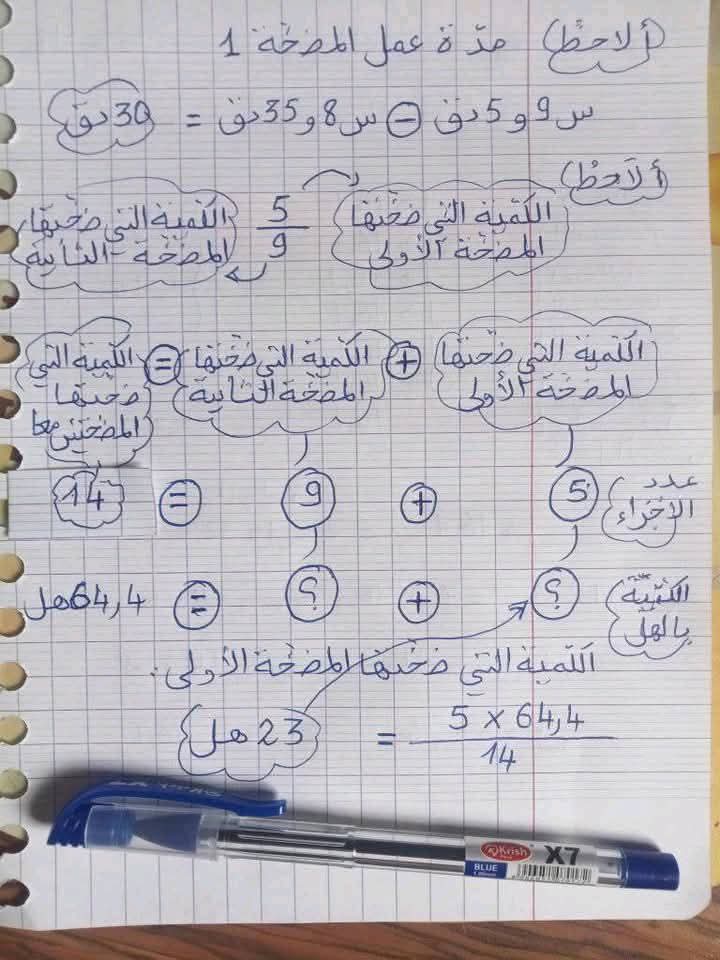 ألاحظ) مدّة عمل المضخّة 1
س9 و5دق − س8 و35دق = 30دق
ألاحظ)
الكمّية التي ضخّتها المضخّة الأولى 5/9 الكمّية التي ضخّتها المضخّة الثانية
الكمّية التي ضخّتها المضخّة الأولى + الكمّية التي ضخّتها المضخّة الثانية = الكمّية التي ضخّتها المضختين معا
عدد الأجزاء 5 + 9 = 14
الكمّيّة بالهل ؟ + ؟ = 64,4هل
الكمّية التي ضخّتها المضخّة الأولى:
5 x 64,4 / 14 = 23هل
Krish
X7
BLUE